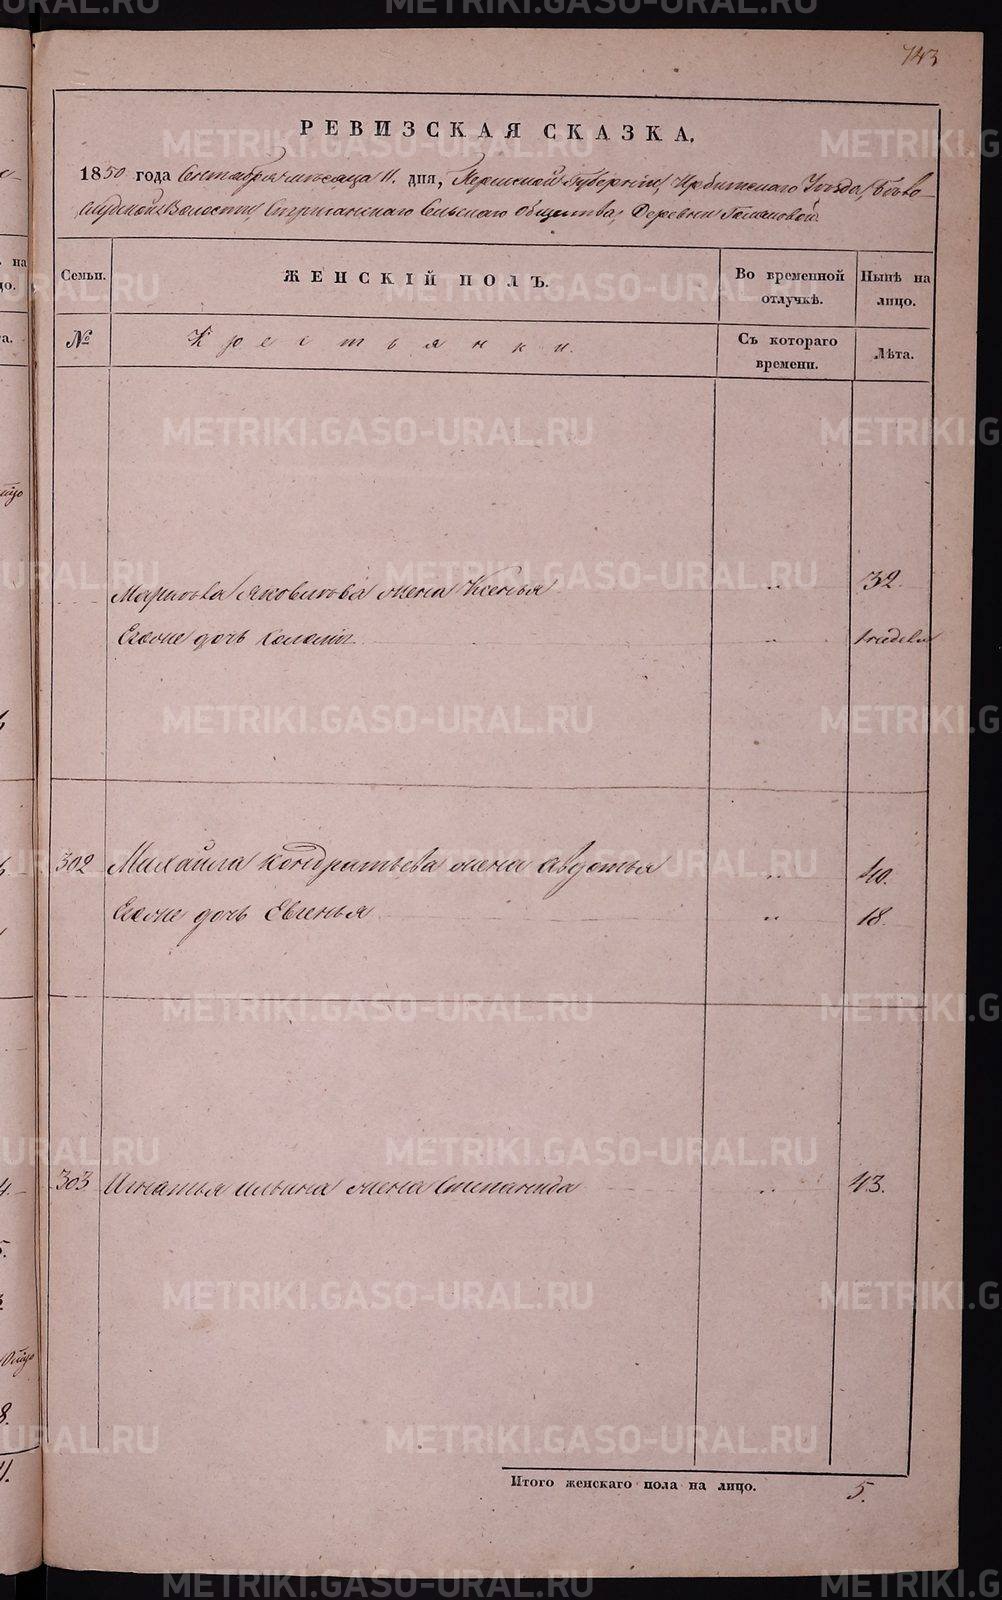 743
РЕВИЗСКАЯ СКАЗКА.
1850 года Сентября месяца 11. дня, Пермской Губернiи, Ирбитскаго Уѣзда,
Волости, Стриганскаго Сельскаго Общества, Деревни
Семьи. ЖЕНСКІЙ ПОЛЪ. Во временной отлучкѣ. Нынѣ на лицо.
№ Крестьянки. Съ котораго времени. Лѣта.
Яковлева жена Ксенья " 32.
Егоже дочь "
302 Михайла Кондратьева жена Авдотья " 40.
Егоже дочь Евгенья " 18.
303 Игнатья Ильина жена Степанида " 43.
Итого женскаго пола на лицо. 5.
METRIKI.GASO-URAL.RU